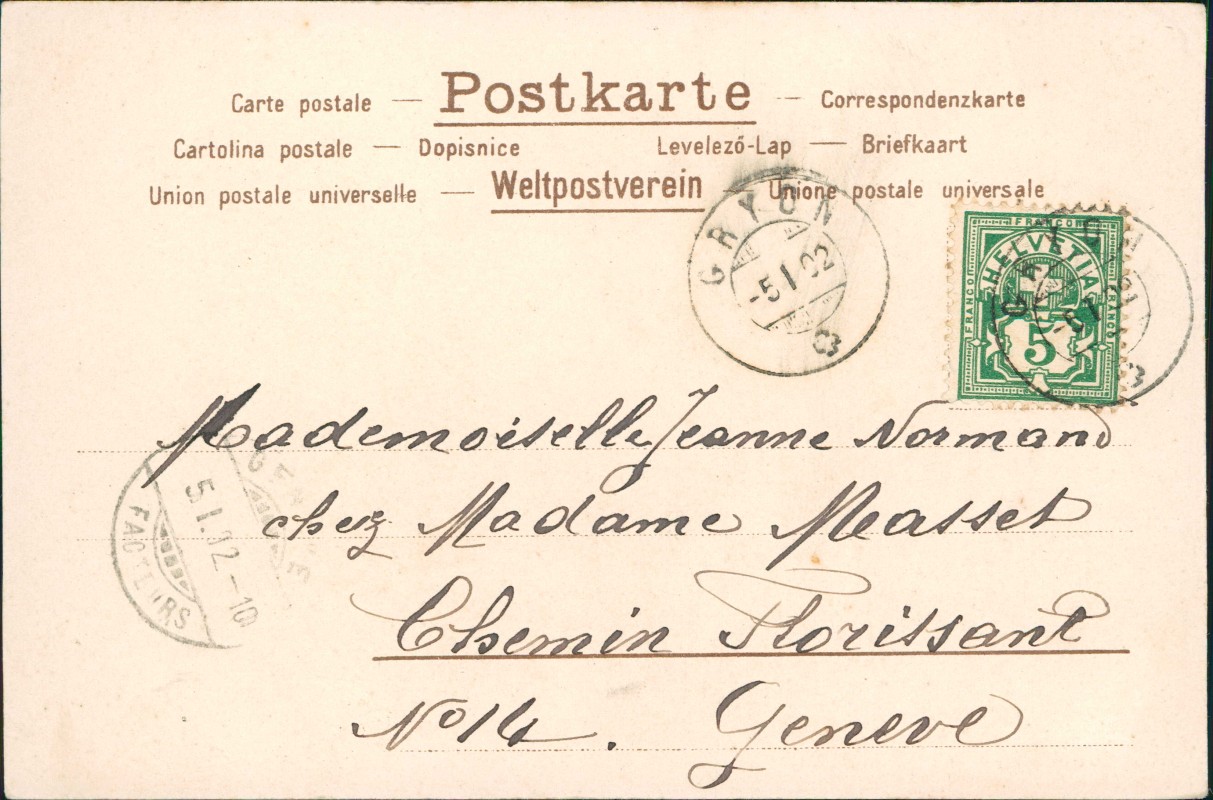 Carte postale — Postkarte — Correspondenzkarte
Cartolina postale — Dopisnice Levelező-Lap — Briefkaart
Union postale universelle — Weltpostverein — Unione postale universale
GRYON
-5 I 02
FRANCO
HELVETIA
FRANCO
FRANCO
5
GRYON
-5 I 02
Mademoiselle Jeanne Normand
chez Madame Masset
Chemin Florissant
No 14. Geneve
GENEVE
5 I.02-10
FACTEURS